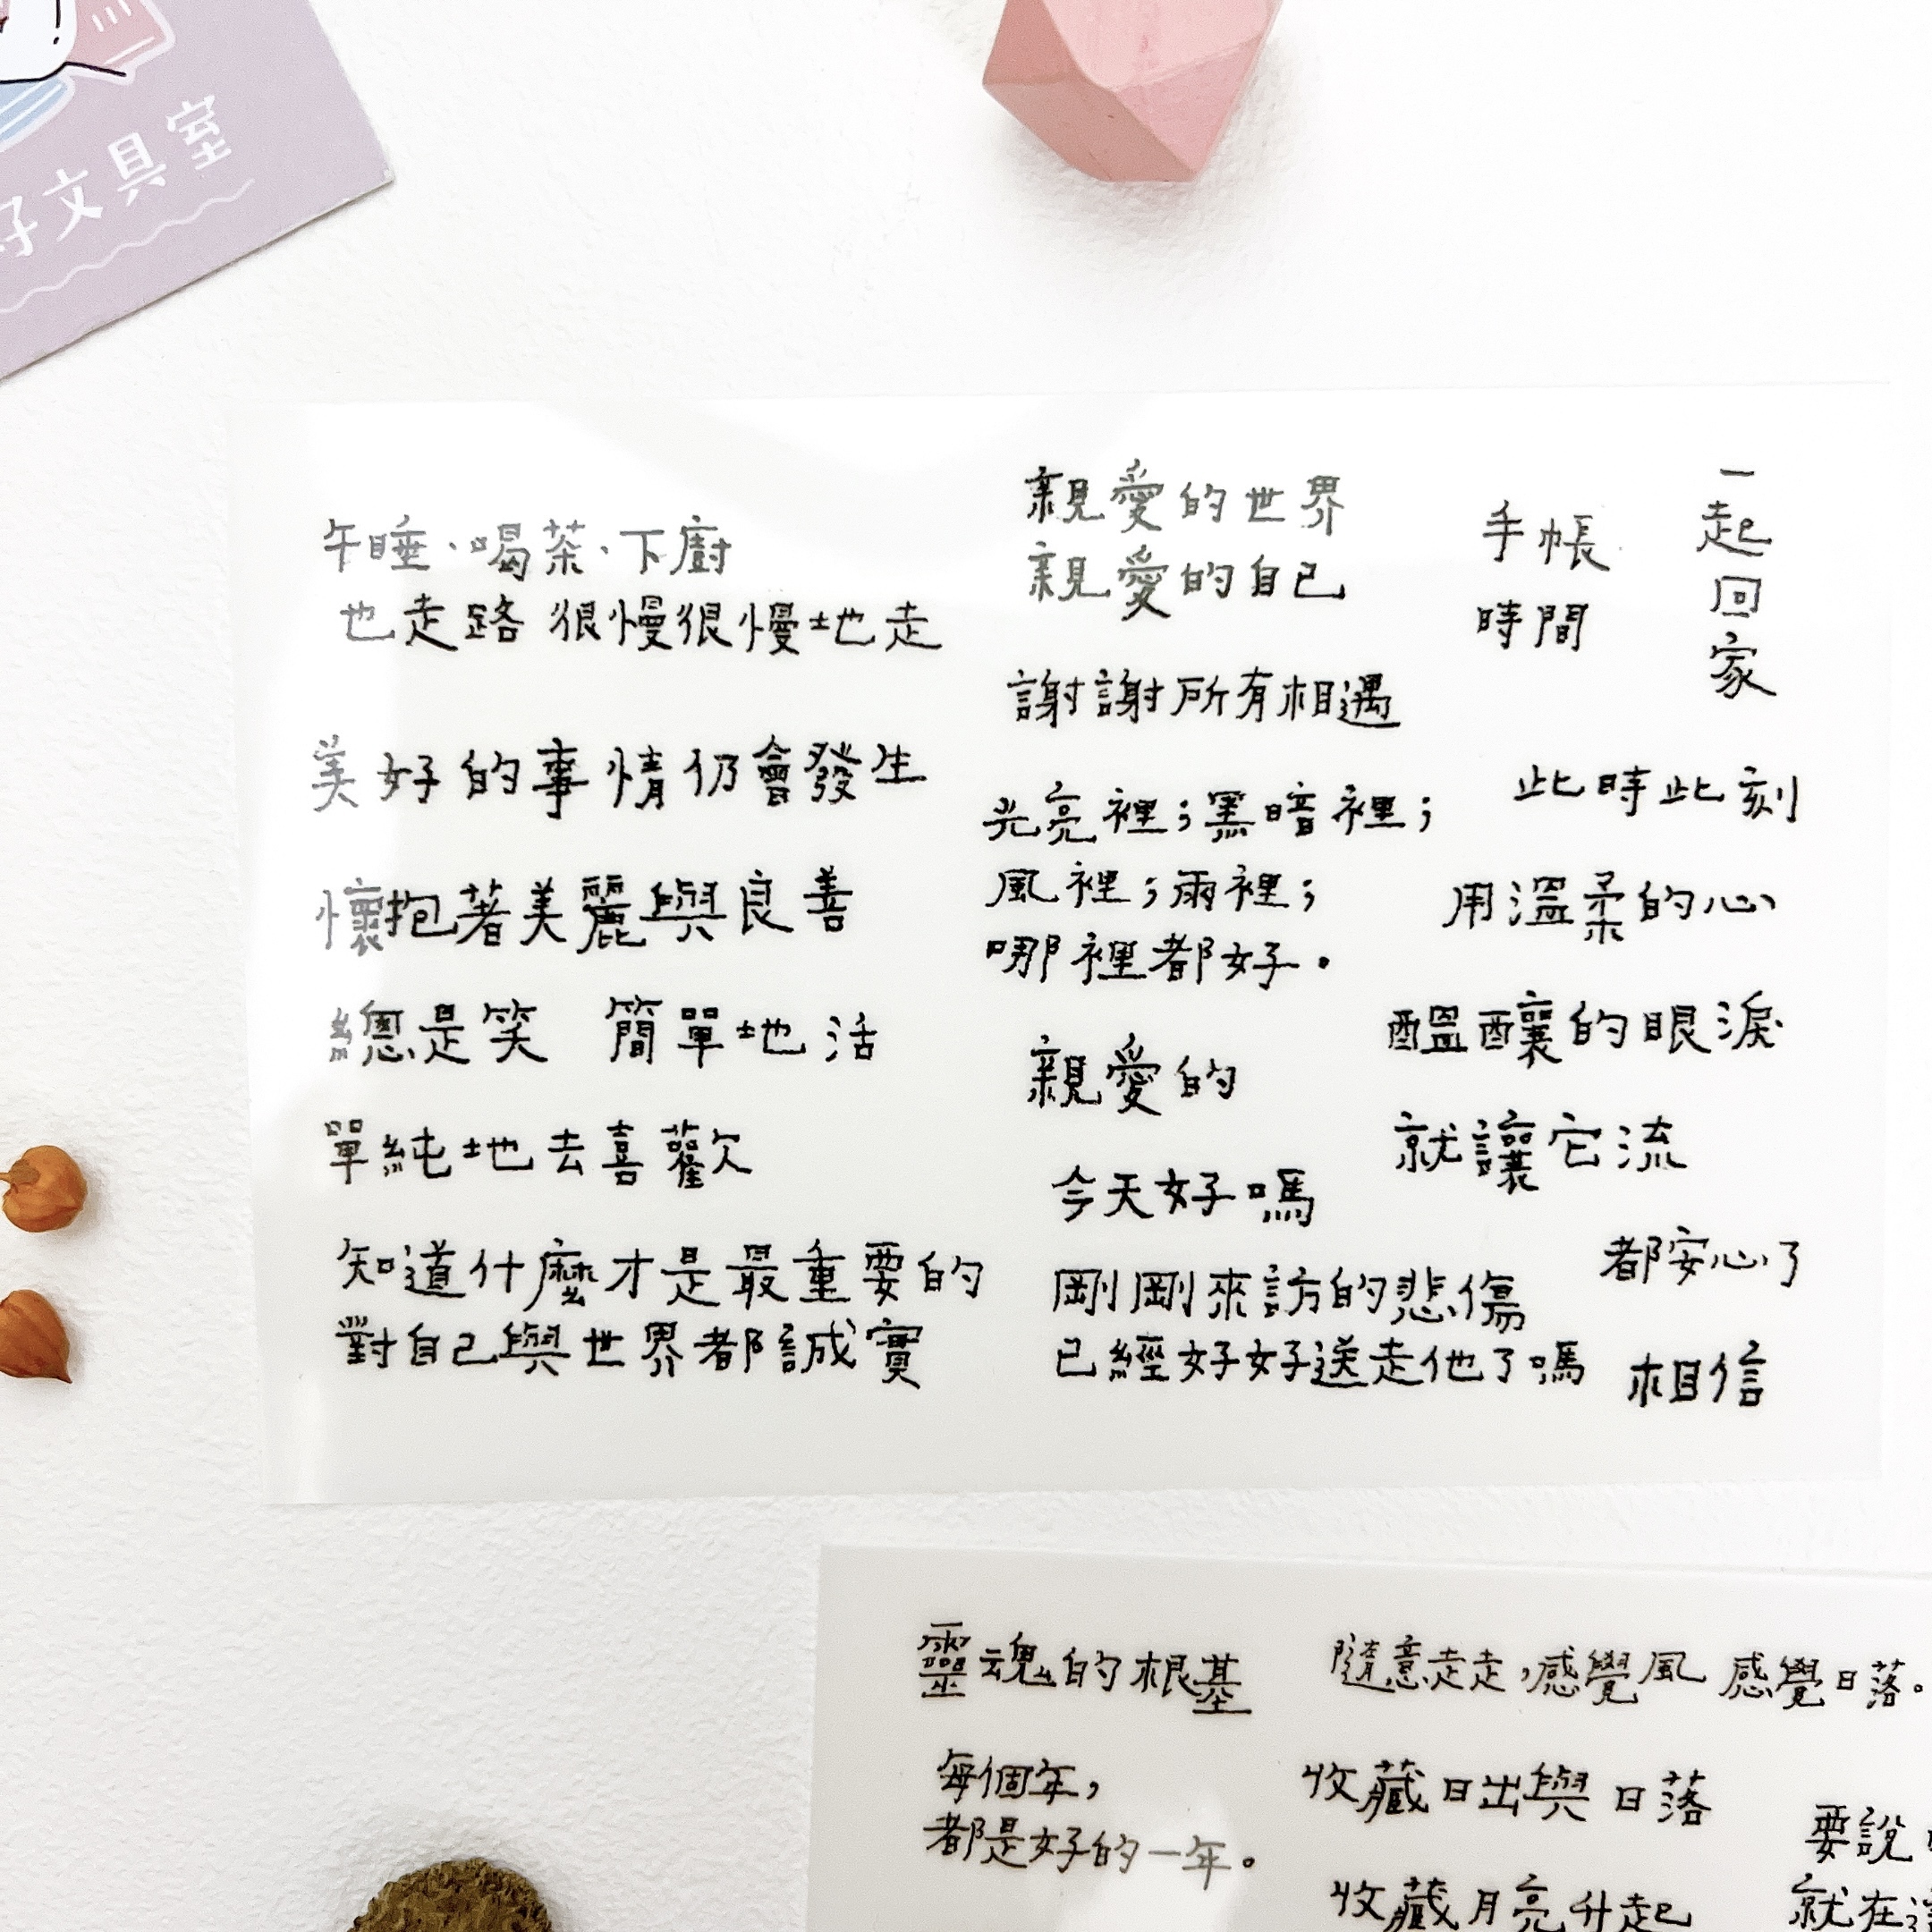 好文具室
午睡、喝茶、下廚
也走路 很慢很慢地走
美好的事情仍會發生
懷抱著美麗與良善
總是笑 簡單地活
單純地去喜歡
知道什麼才是最重要的
對自己與世界都誠實
親愛的世界
親愛的自己
謝謝所有相遇
光亮裡；黑暗裡；
風裡；雨裡；
哪裡都好。
親愛的
今天好嗎
剛剛來訪的悲傷
已經好好送走他了嗎
手帳
時間
一起回家
此時此刻
用溫柔的心
醞釀的眼淚
就讓它流
都安心了
相信
靈魂的根基
每個年，
都是好的一年。
隨意走走，感覺風 感覺日落。
收藏日出與日落
收藏月亮升起
要說
就在